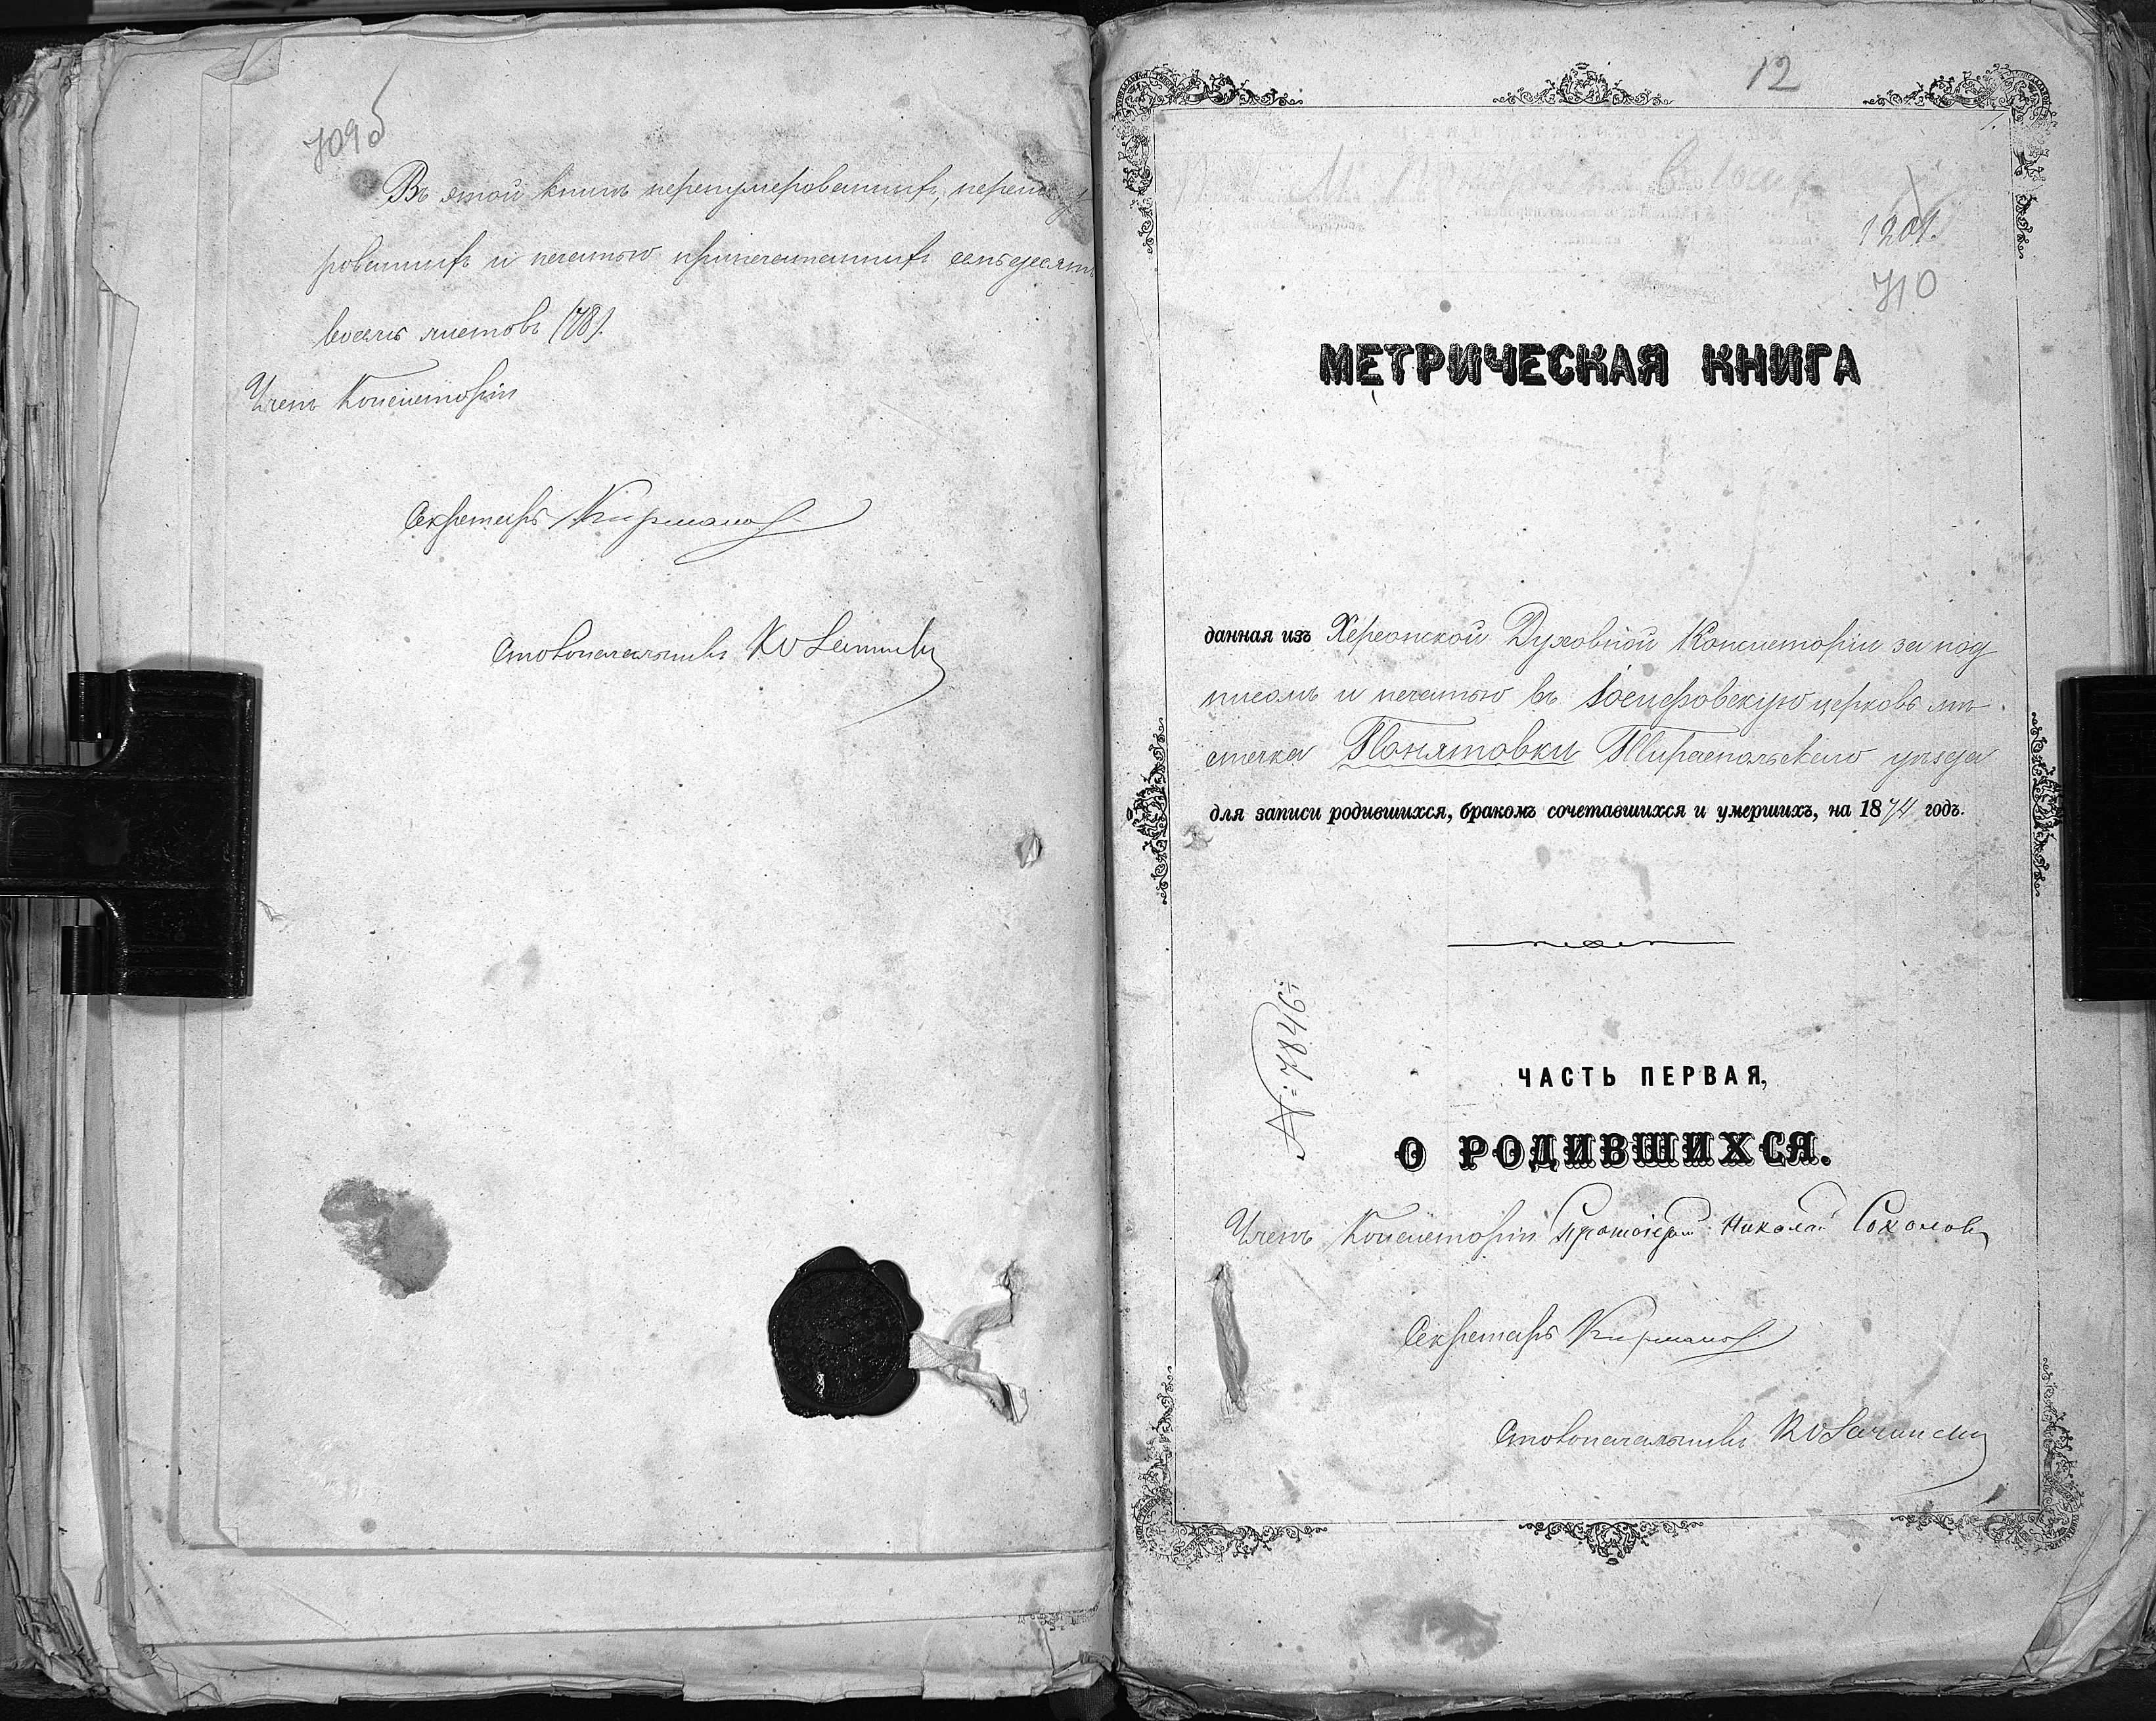 709 б
Въ этой книгѣ перенумерованныхъ,
рованныхъ и печатью припечатанныхъ семьдесятъ
восемь листовъ (78).
Членъ Консисторіи
Секретарь
Столоначальникъ
12
1.
1201.
710
МЕТРИЧЕСКАЯ КНИГА
данная изъ Херсонской Духовной Консисторіи за под
писомъ и печатью въ Іосифовскую церковь мѣ
стечка Понятовки Тираспольскаго уѣзда
для записи родившихся, бракомъ сочетавшихся и умершихъ, на 1874 годъ.
№ 7846
ЧАСТЬ ПЕРВАЯ,
О РОДИВШИХСЯ.
Членъ Консисторіи Протоіерей Николай Соколовъ
Секретарь
Столоначальникъ